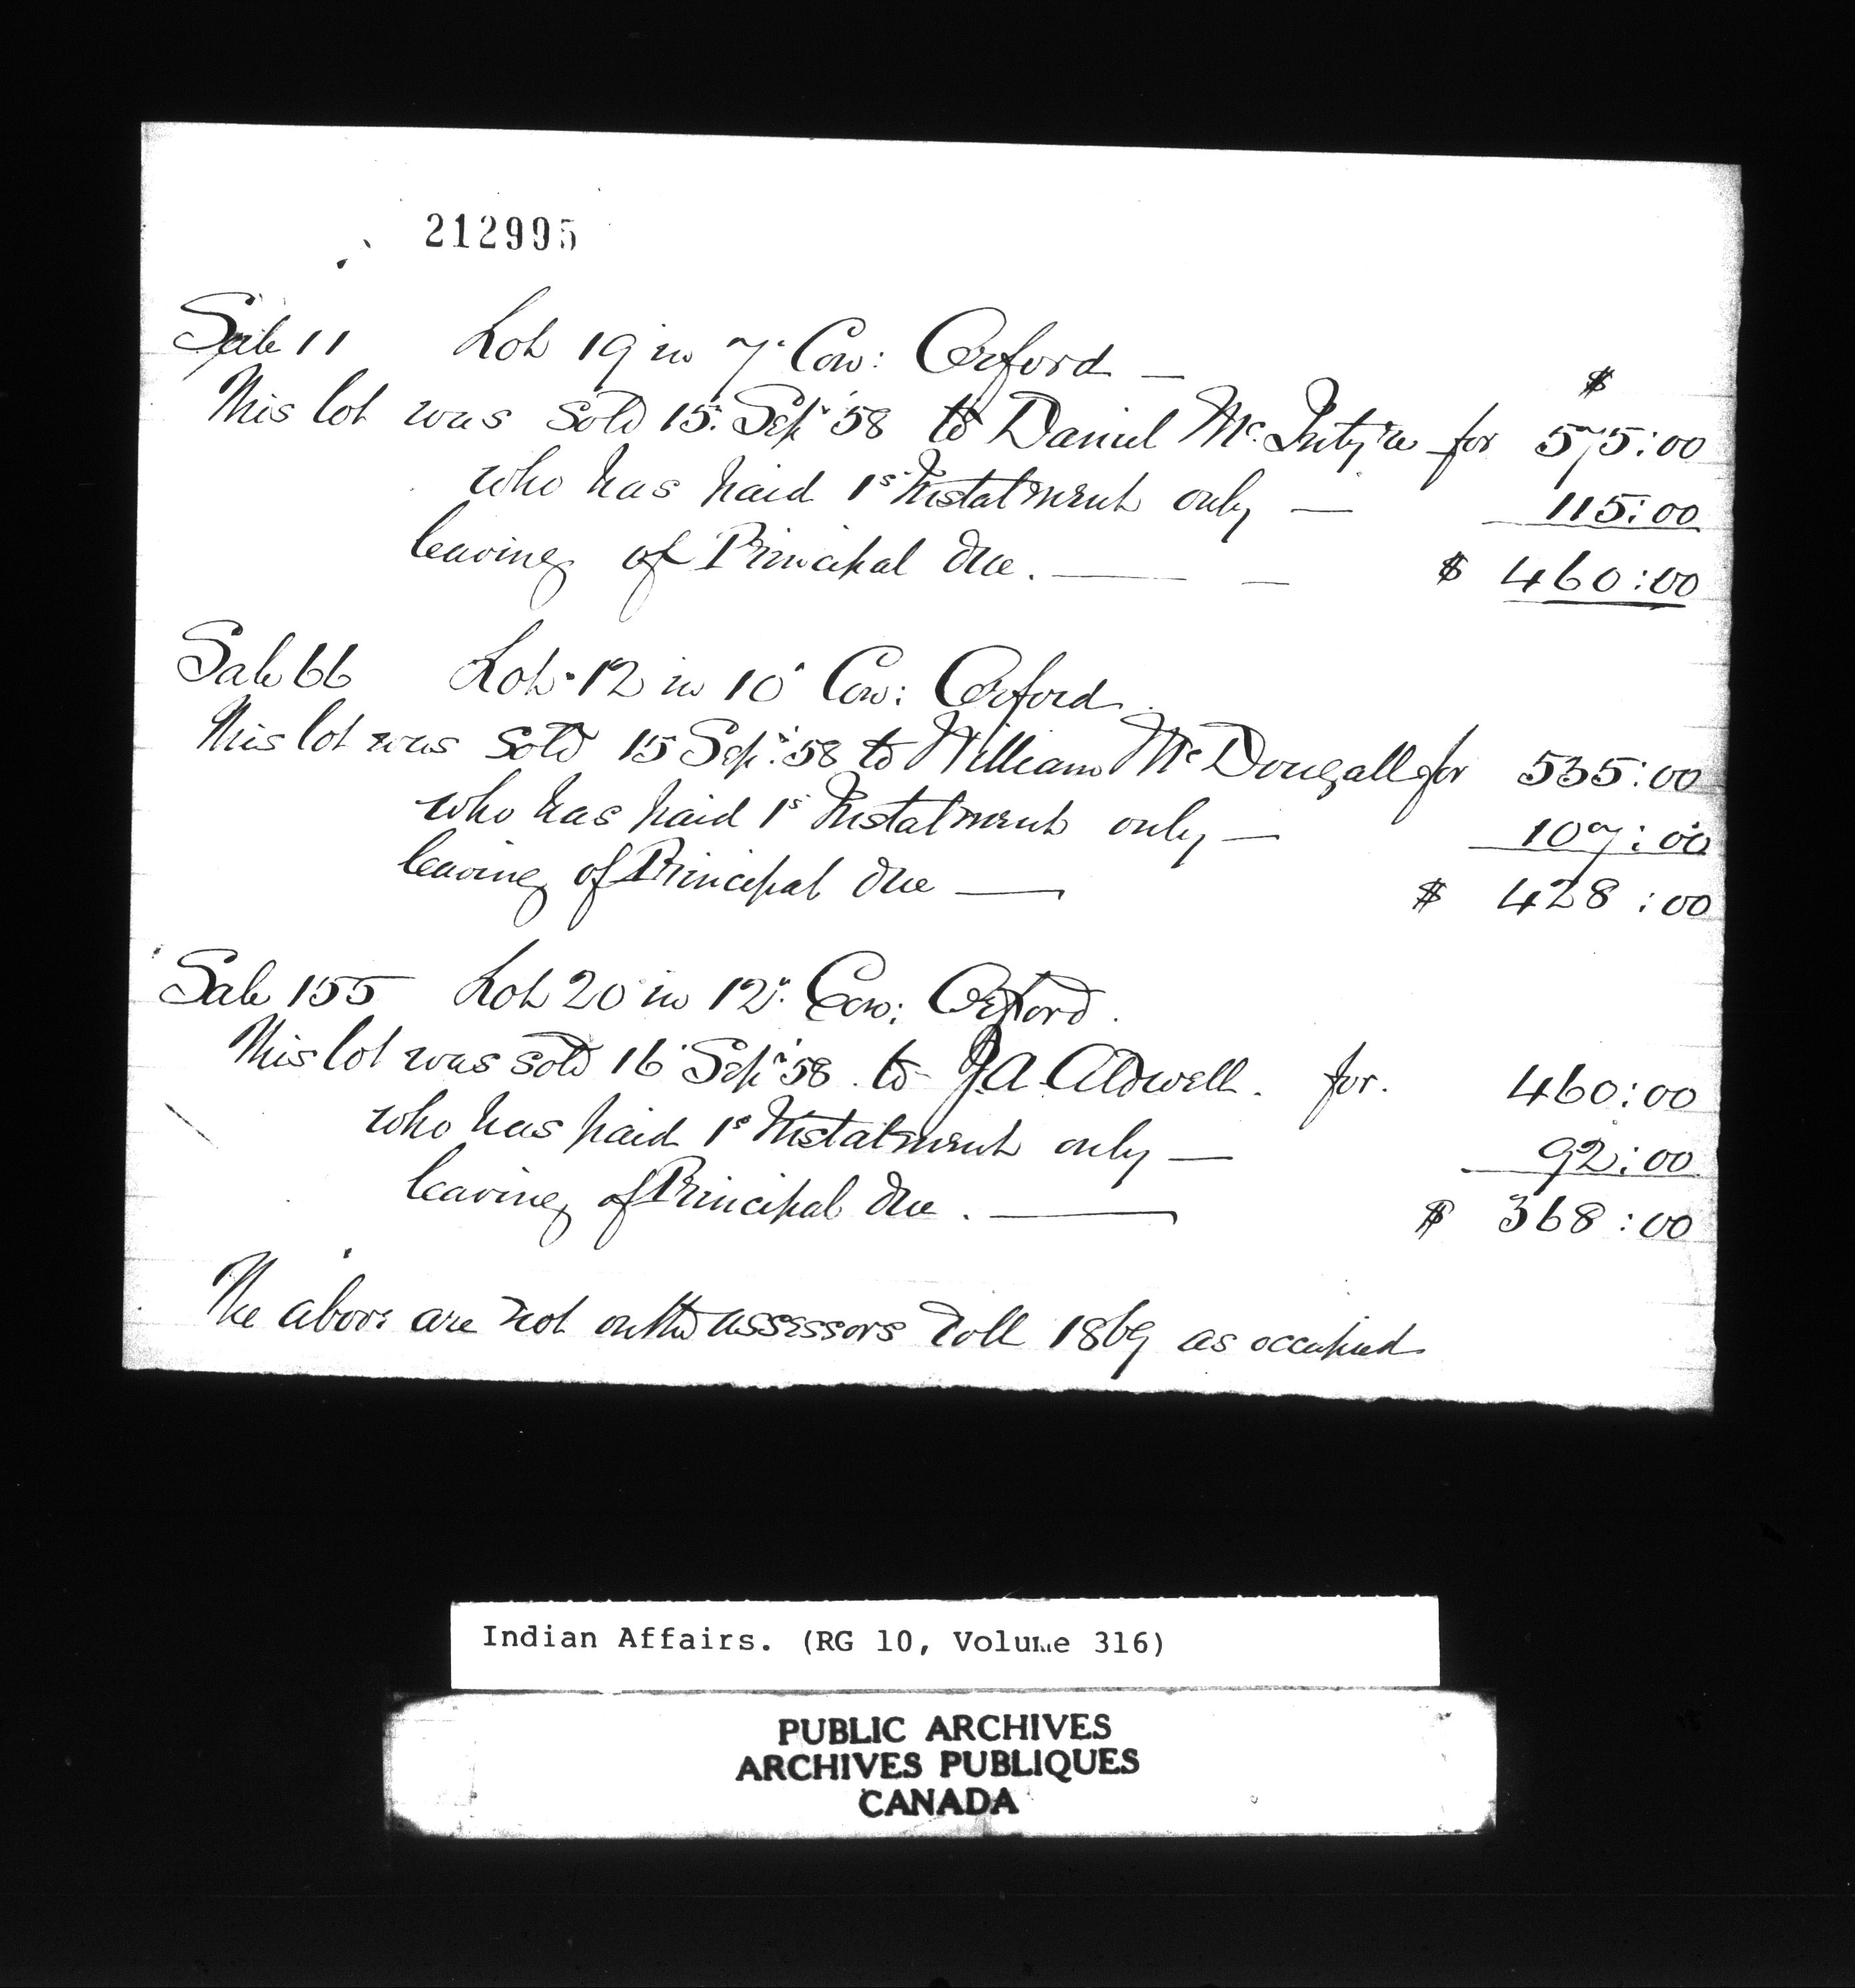 212995
Sale 11 Lot 19 in 7' Con: Orford —
$
This lot was sold 15: Sep' '58 to Daniel Mc.Intyre for 575:00
who has paid 1s Instalment only — 115:00
leaving of Principal due. — — $ 460:00
Sale 66 Lot 12 in 10' Con: Orford.
This lot was sold 15 Sep: '58 to William McDougall for 535:00
who has paid 1s Instalment only — 107:00
leaving of Principal due — $ 428:00
Sale 155 Lot 20 in 12': Con: Orford.
This lot was sold 16' Sep' '58. to J A Aldwell. for. 460:00
who has paid 1s Instalment only — 92:00
leaving of Principal due. — $ 368:00
The above are not on the assessors roll 1869 as occupied
Indian Affairs. (RG 10, Volume 316)
PUBLIC ARCHIVES
ARCHIVES PUBLIQUES
CANADA